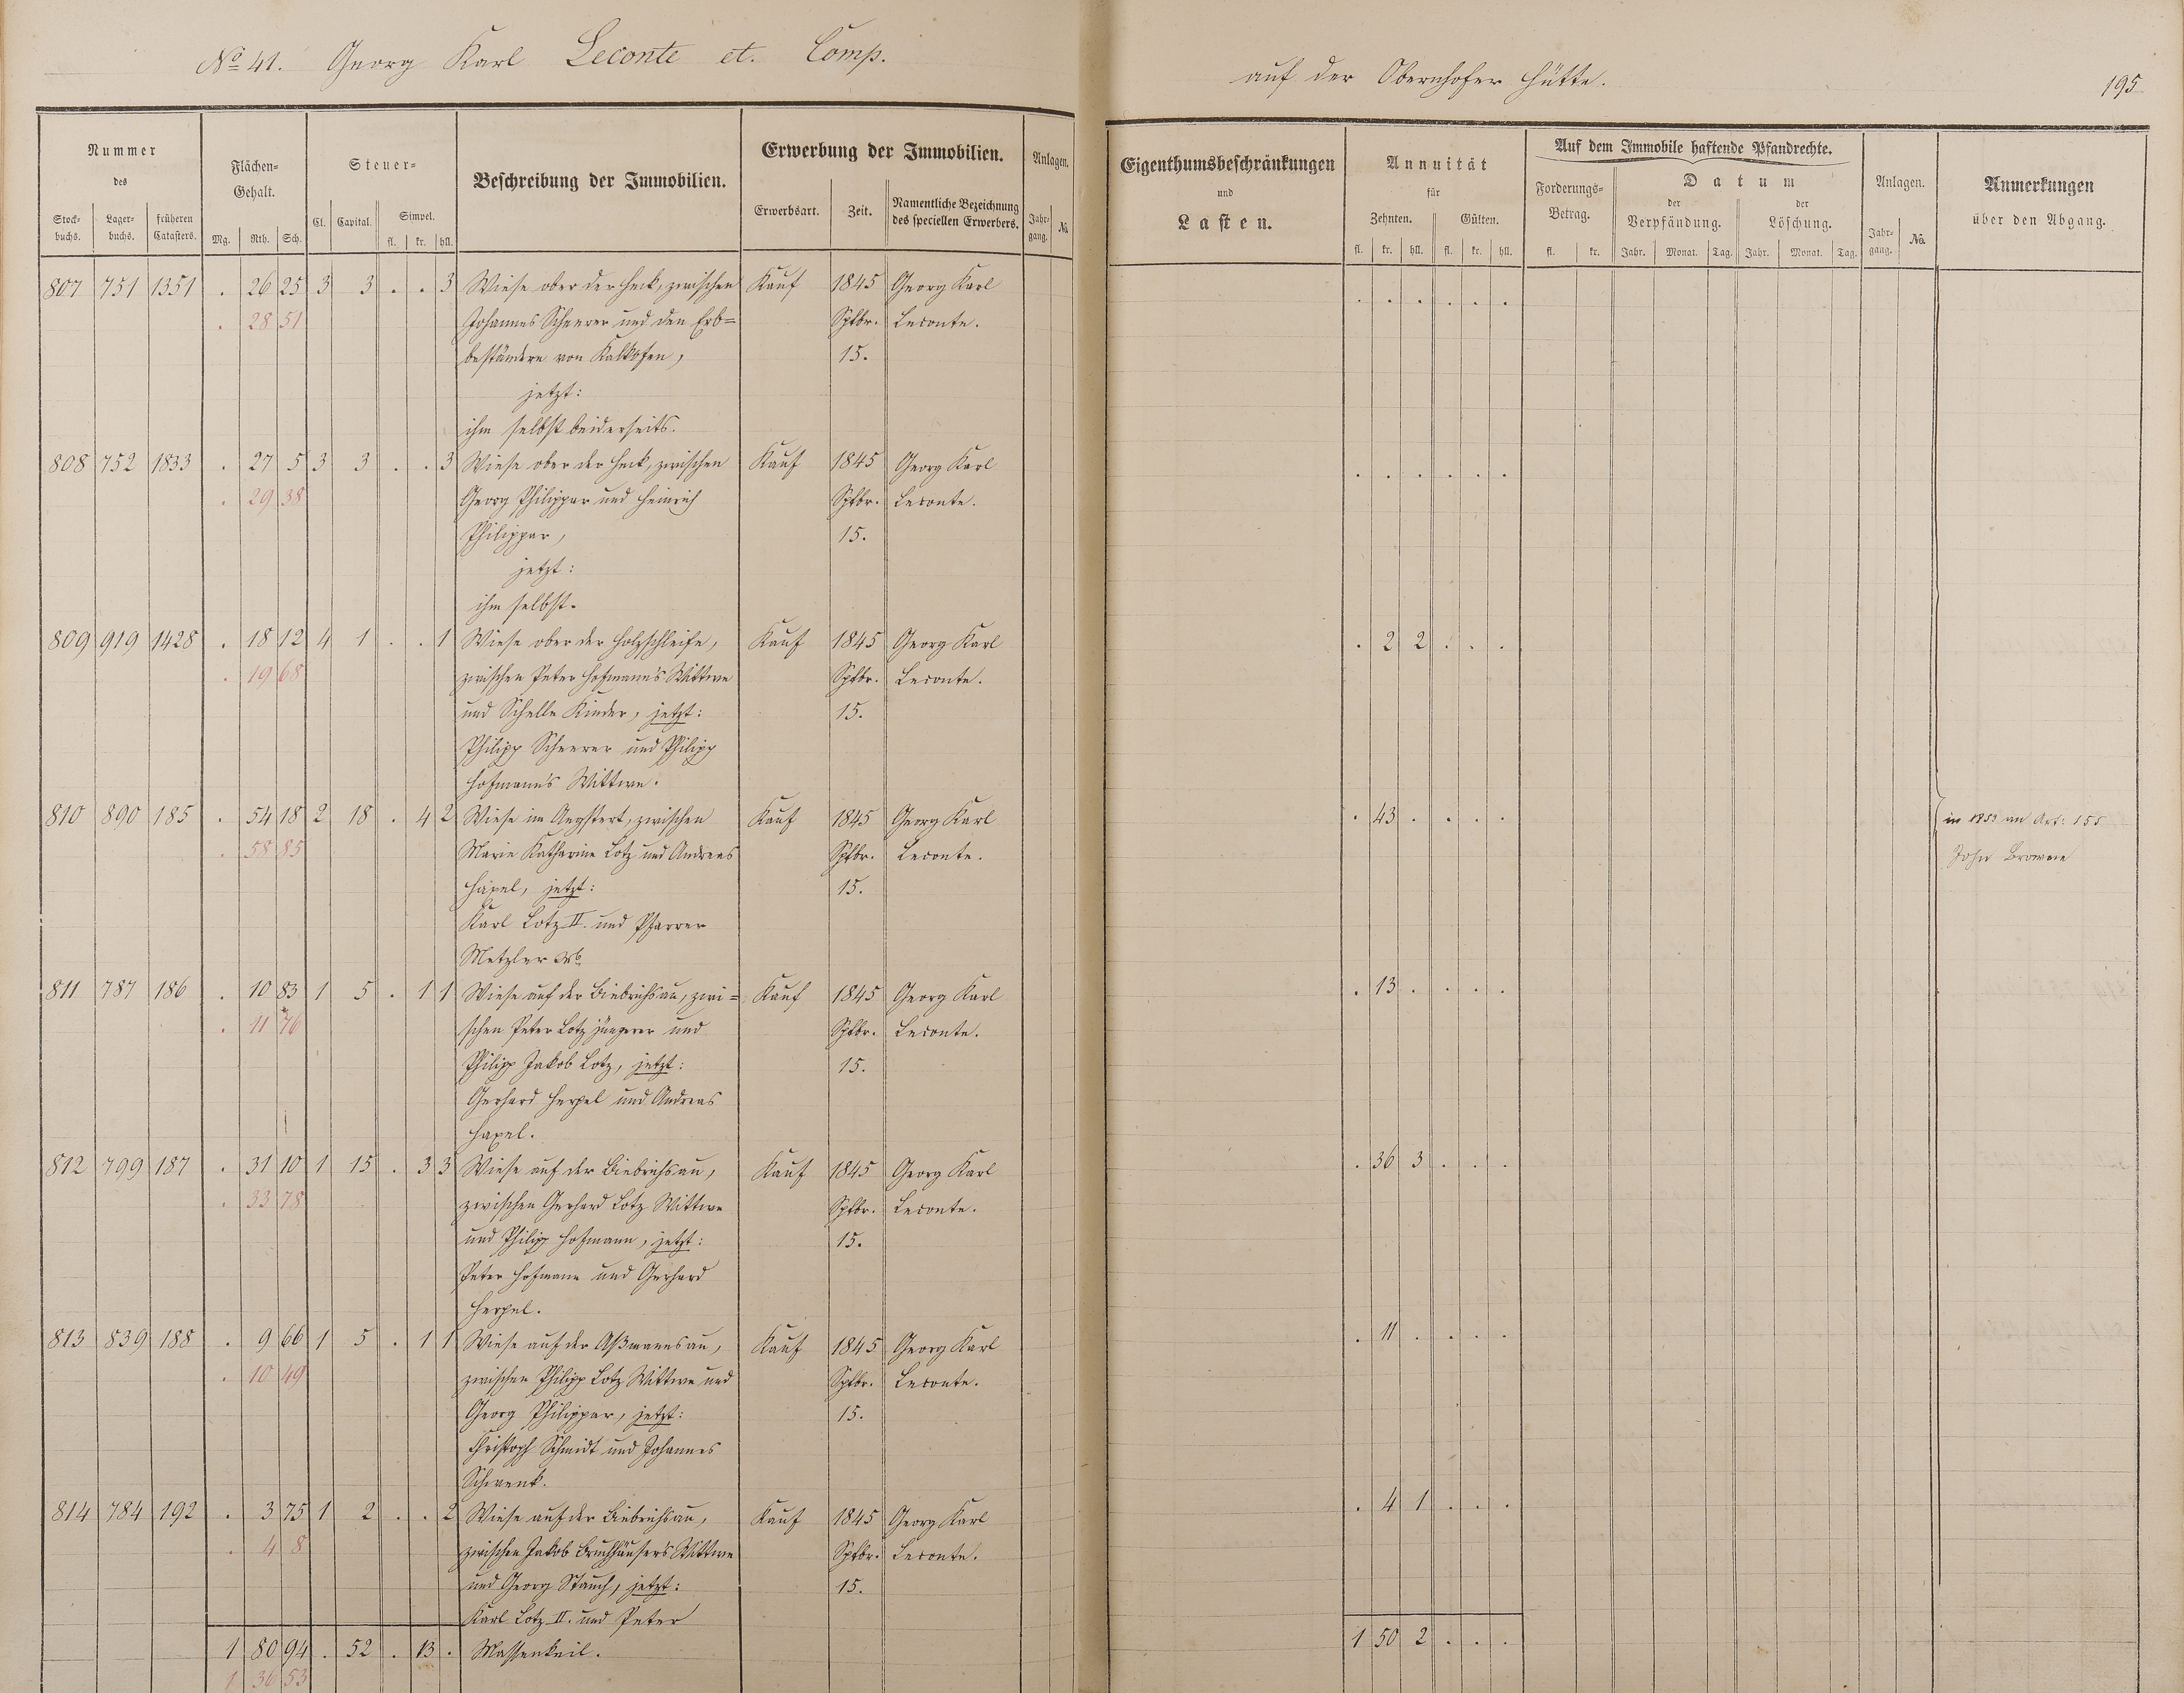 No 41. Georg Karl Leconte et. Comp.
auf der Obernhofer Hütte.
195
Nummer des
Stockbuchs. Lagerbuchs. früheren Catasters.
Flächen-Gehalt.
Mg. Rth. Sch.
Steuer-
Cl. Capital. Simpel.
fl. kr. hll.
Beschreibung der Immobilien.
Erwerbung der Immobilien.
Erwerbsart. Zeit. Namentliche Bezeichnung des speciellen Erwerbers.
Anlagen.
Jahrgang. No.
Eigenthumsbeschränkungen
und
Lasten.
Annuität
für
Zehnten. Gülten.
fl. kr. hll. fl. kr. hll.
Auf dem Immobile haftende Pfandrechte.
Forderungs-Betrag.
fl. kr.
Datum
der Verpfändung. der Löschung.
Jahr. Monat. Tag. Jahr. Monat. Tag.
Anlagen.
Jahrgang. No.
Anmerkungen
über den Abgang.
807 751 1351 . 26 25 3 3 . . 3 Wiese ober der Heck, zwischen Kauf 1845 Georg Karl . . . . . .
. 28 51 Johannes Scheerer und den Erb= Sptbr. Leconte.
beständern von Kalkofen, 15.
jetzt:
ihm selbst beiderseits.
808 752 1833 . 27 5 3 3 . . 3 Wiese ober der Heck, zwischen Kauf 1845 Georg Karl . . . . . .
. 29 38 Georg Philippar und Heinrich Sptbr. Leconte.
Philippar, 15.
jetzt:
ihm selbst.
809 919 1428 . 18 12 4 1 . . 1 Wiese ober der Holzschleife, Kauf 1845 Georg Karl . 2 2 . . .
. 19 68 zwischen Peter Hofmann's Wittwe Sptbr. Leconte.
und Schelle Kinder, jetzt: 15.
Philipp Scheerer und Philipp
Hofmann's Wittwe.
810 890 185 . 54 18 2 18 . 4 2 Wiese im zwischen Kauf 1845 Georg Karl . 43 . . . . in 1853 an Art: 155
. 58 85 Marie Katharine Lotz und Andreas Sptbr. Leconte. John Browne
Häxel, jetzt: 15.
Karl Lotz II. und Pfarrer
Metzler
811 787 186 . 10 83 1 5 . 1 1 Wiese auf der Biebrichsau, zwi= Kauf 1845 Georg Karl . 13 . . . .
. 11 76 schen Peter Lotz jüngerer und Sptbr. Leconte.
Philipp Jakob Lotz, jetzt: 15.
Gerhard Herpel und Andreas
Haxel.
812 799 187 . 31 10 1 15 . 3 3 Wiese auf der Biebrichsau, Kauf 1845 Georg Karl . 36 3 . . .
. 33 78 zwischen Gerhard Lotz Wittwe Sptbr. Leconte.
und Philipp Hofmann, jetzt: 15.
Peter Hofmann und Gerhard
Herpel.
813 839 188 . 9 66 1 5 . 1 1 Wiese auf der Aßmannsau, Kauf 1845 Georg Karl . 11 . . . .
. 10 49 zwischen Philipp Lotz Wittwe und Sptbr. Leconte.
Georg Philippar, jetzt: 15.
Christoph Schmidt und Johannes
Schwenk.
814 784 192 . 3 75 1 2 . . 2 Wiese auf der Biebrichsau, Kauf 1845 Georg Karl . 4 1 . . .
. 4 8 zwischen Jakob Bruchhäusers Wittwe Sptbr. Leconte.
und Georg Stauch, jetzt: 15.
Karl Lotz II. und Peter
1 80 94 . 52 . 13 . Massenkeil. 1 50 2 . . .
1 36 53